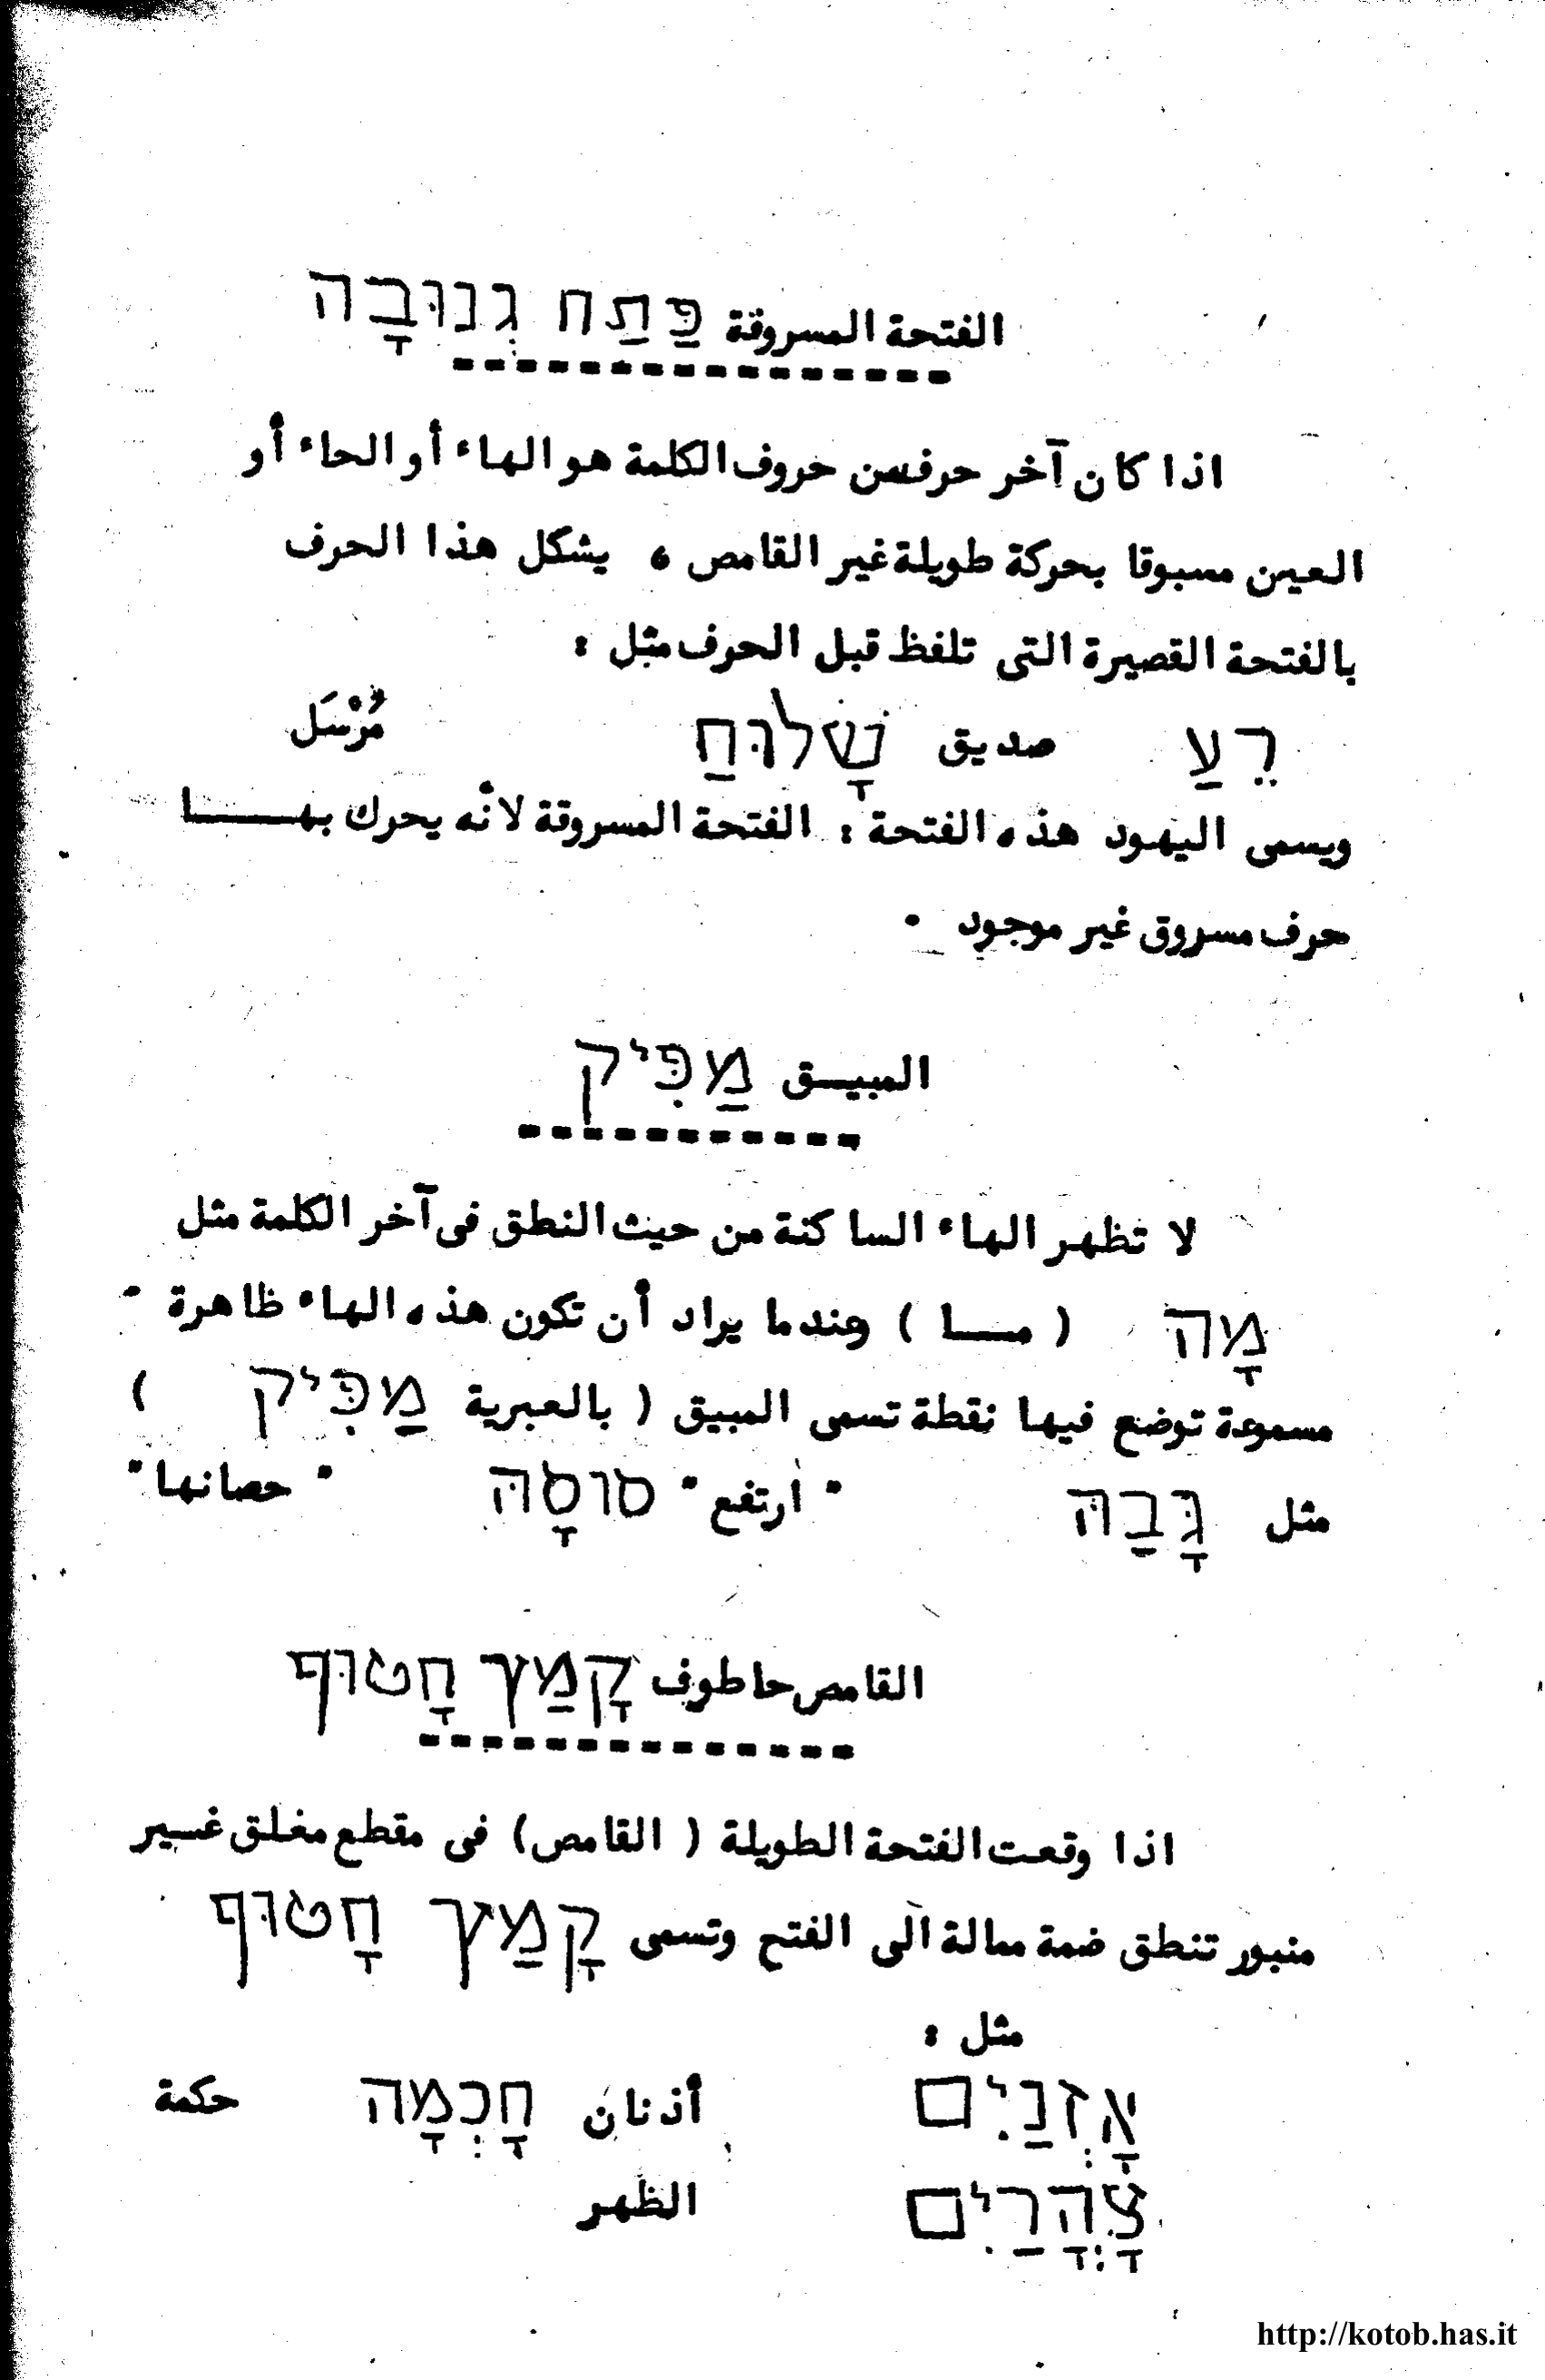 الفتحة المسروقة פַּתַח גְנוּבָה
اذا كان آخر حرف من حروف الكلمة هو الهاء أو الحاء أو
العين مسبوقا بحركة طويلة غير القامص ، يشكل هذا الحرف
بالفتحة القصيرة التى تلفظ قبل الحرف مثل :
רֵעַ صديق שָׁלוּחַ مُرْسَل
ويسمى اليهود هذه الفتحة : الفتحة المسروقة لأنه يحرك بهـــــا
حرف مسروق غير موجود .
المبيــق מַפִּיק
لا تظهر الهاء الساكنة من حيث النطق فى آخر الكلمة مثل
מָה ( مــــا ) وعندما يراد أن تكون هذه الهاء ظاهرة -
مسموعة توضع فيها نقطة تسمى المبيق ( بالعبرية מַפִּיק )
مثل גָּבַהּ " ارتفع " סוסָהּ " حصانها "
القامص حاطوف קָמַץ חָטוּף
اذا وقعت الفتحة الطويلة ( القامص ) فى مقطع مغلق غــير
منبور تنطق ضمة ممالة الى الفتح وتسمى קָמַץ חָטוּף
مثل :
אָזְנַיִם أذنان חָכְמָה حكمة
צָהֳרַיִם الظهر
http://kotob.has.it